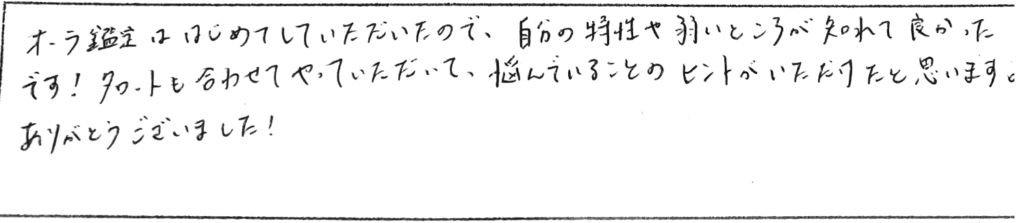 オーラ鑑定ははじめてしていただいたので、自分の特性や弱いところが知れて良かった
です！タロットも合わせてやっていただいて、悩んでいることのヒントがいただけたと思います。
ありがとうございました！